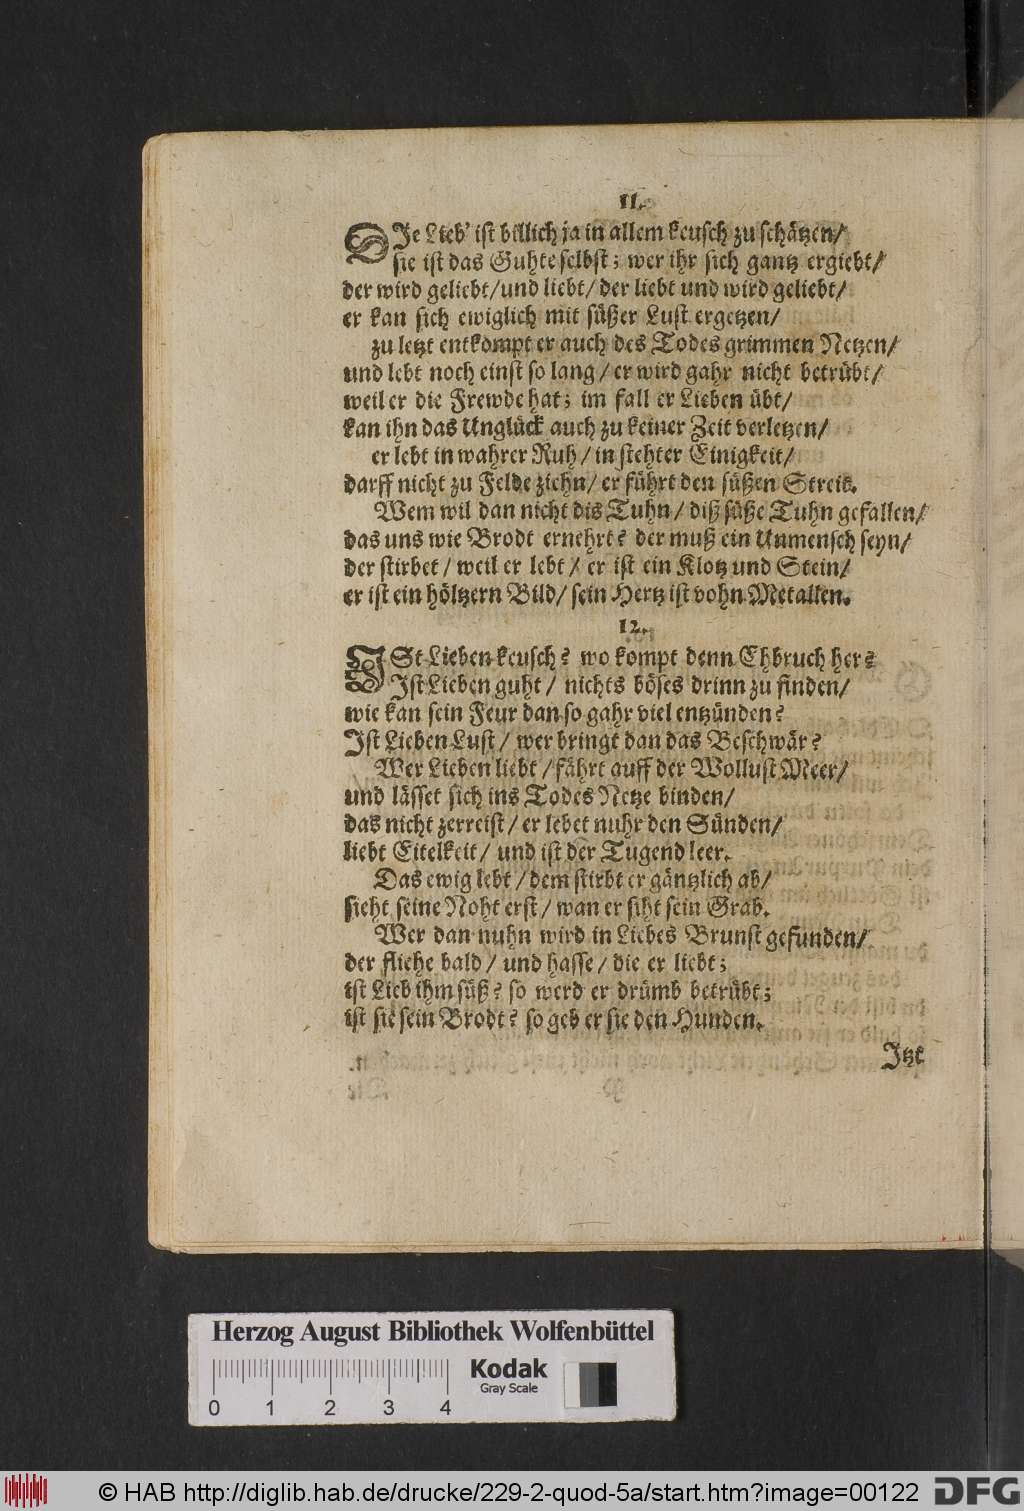 11.
DIe Lieb' ist billich ja in allem keusch zu schätzen/
sie ist das Guhte selbst; wer ihr sich gantz ergiebt/
der wird geliebt/und liebt/der liebt und wird geliebt/
er kan sich ewiglich mit süßer Lust ergetzen/
zu letzt entkompt er auch des Todes grimmen Netzen/
und lebt noch einst so lang/er wird gahr nicht betrübt/
weil er die Frewde hat; im fall er Lieben übt/
kan ihn das Unglück auch zu keiner Zeit verletzen/
er lebt in wahrer Ruh/in stehter Einigkeit/
darff nicht zu Felde ziehn/er führt den süßen Streit.
Wem wil dan nicht dis Tuhn/diß süße Tuhn gefallen/
das uns wie Brodt ernehrt? der muß ein Unmensch seyn/
der stirbet/weil er lebt/er ist ein Klotz und Stein/
er ist ein höltzern Bild/sein Hertz ist vohn Metallen.
12.
ISt Lieben keusch? wo kompt denn Ehbruch her?
Ist Lieben guht/nichts böses drinn zu finden/
wie kan sein Feur dan so gahr viel entzünden?
Ist Lieben Lust/wer bringt dan das Beschwär?
Wer Lieben liebt/fährt auff der Wollust Meer/
und lässet sich ins Todes Netze binden/
das nicht zerreist/er lebet nuhr den Sünden/
liebt Eitelkeit/und ist der Tugend leer.
Das ewig lebt/dem stirbt er gäntzlich ab/
sieht seine Noht erst/wan er siht sein Grab.
Wer dan nuhn wird in Liebes Brunst gefunden/
der fliehe bald/und hasse/die er liebt;
ist Lieb ihm süß? so werd er drümb betrübt;
ist sie sein Brodt? so geb er sie den Hunden.
Itzt
Herzog August Bibliothek Wolfenbüttel
Kodak
Gray Scale
0 1 2 3 4
© HAB http://diglib.hab.de/drucke/229-2-quod-5a/start.htm?image=00122
DFG